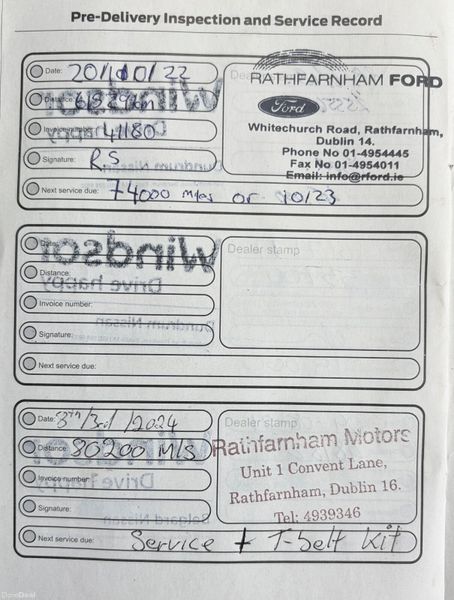 Pre-Delivery Inspection and Service Record
Date: 20/10/22
Distance:
Invoice number: 41180
Signature: R.S
Next service due: 74000 miles or 10/23
RATHFARNHAM FORD
Ford
Whitechurch Road, Rathfarnham,
Dublin 14.
Phone No 01-4954445
Fax No 01-4954011
Email: info@rford.ie
Windsor
Drive happy
Dundrum Nissan
Date:
Distance:
Invoice number:
Signature:
Next service due:
Dealer stamp
Windsor
Drive happy
Dundrum Nissan
Date: 3rd/2024
Distance: 80200 Mls
Invoice number:
Signature:
Next service due: Service + T-belt Kit
Dealer stamp
Rathfarnham Motors
Unit 1 Convent Lane,
Rathfarnham, Dublin 16.
Tel: 4939346
Drive
Nissan
DoneDeal